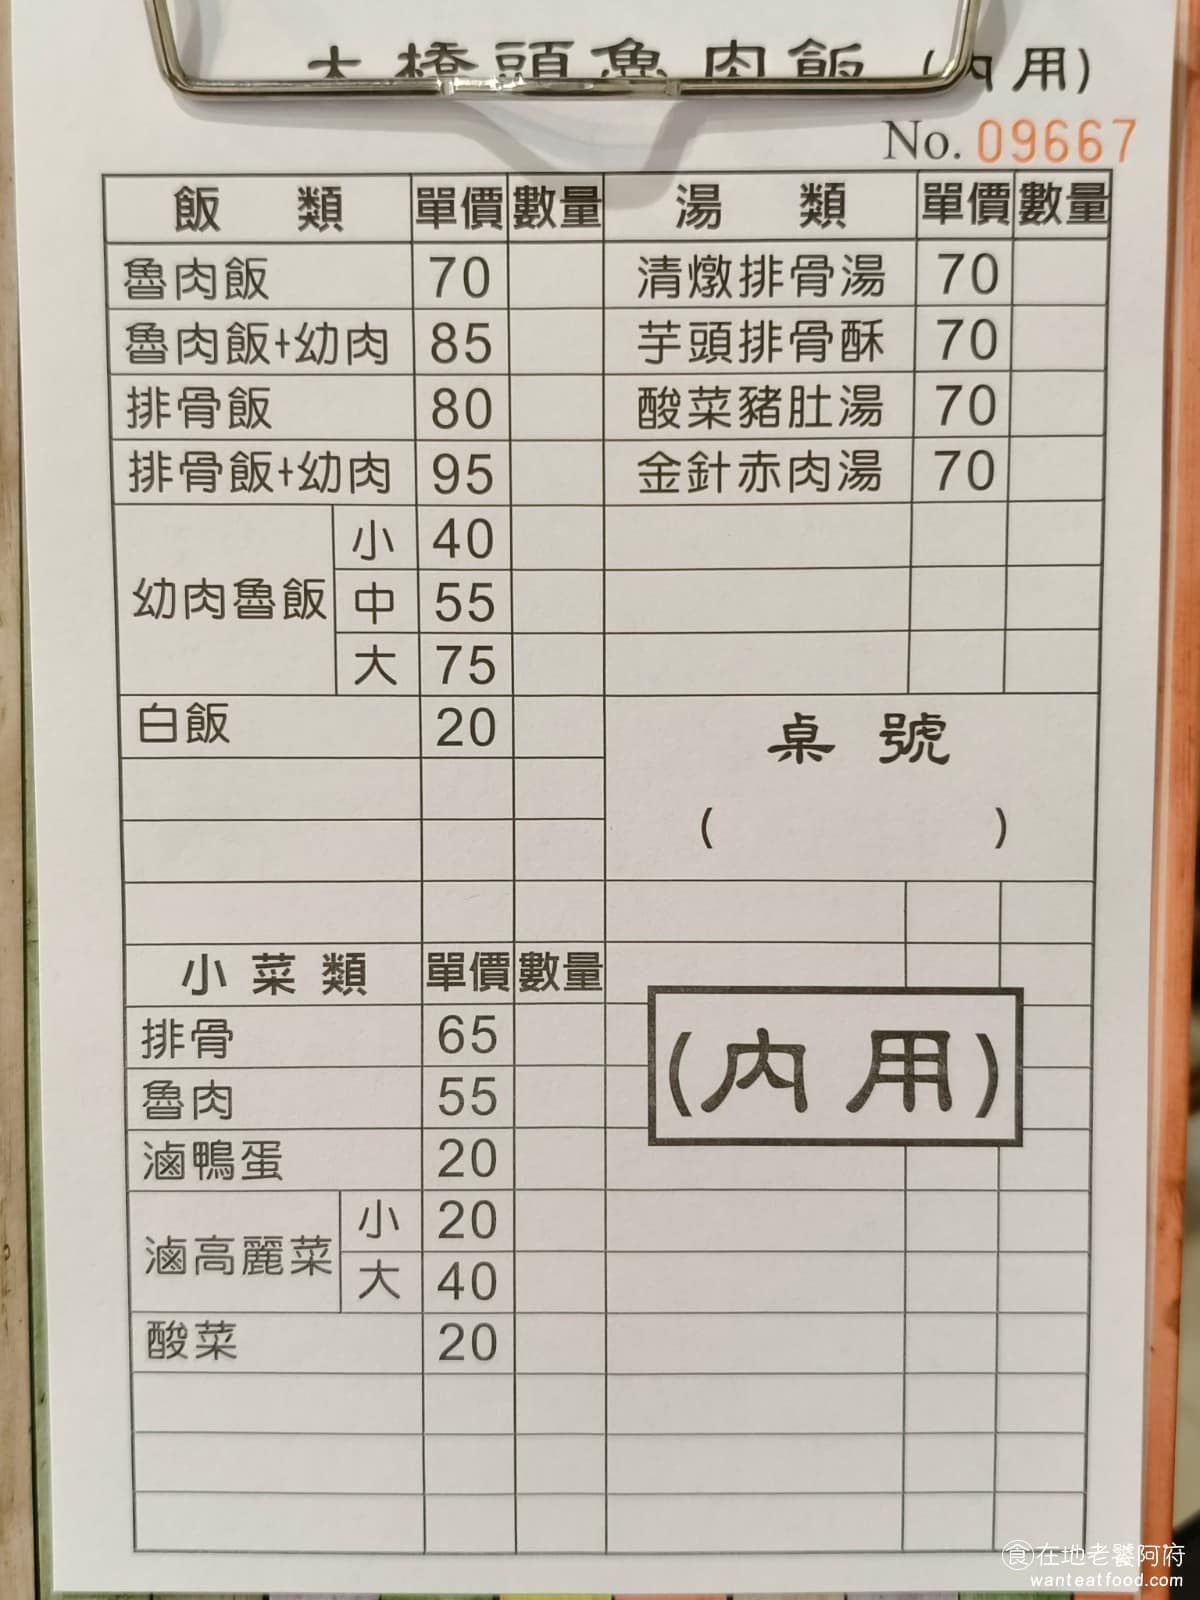 大橋頭魯肉飯 (內用)
No. 09667
飯 類 單價 數量 湯 類 單價 數量
魯肉飯 70 清燉排骨湯 70
魯肉飯+幼肉 85 芋頭排骨酥 70
排骨飯 80 酸菜豬肚湯 70
排骨飯+幼肉 95 金針赤肉湯 70
幼肉魯飯 小 40
中 55
大 75
白飯 20
桌 號
( )
小 菜 類 單價 數量
排骨 65
(內 用)
魯肉 55
滷鴨蛋 20
滷高麗菜 小 20
大 40
酸菜 20
食在地老饕阿府
wanteatfood.com